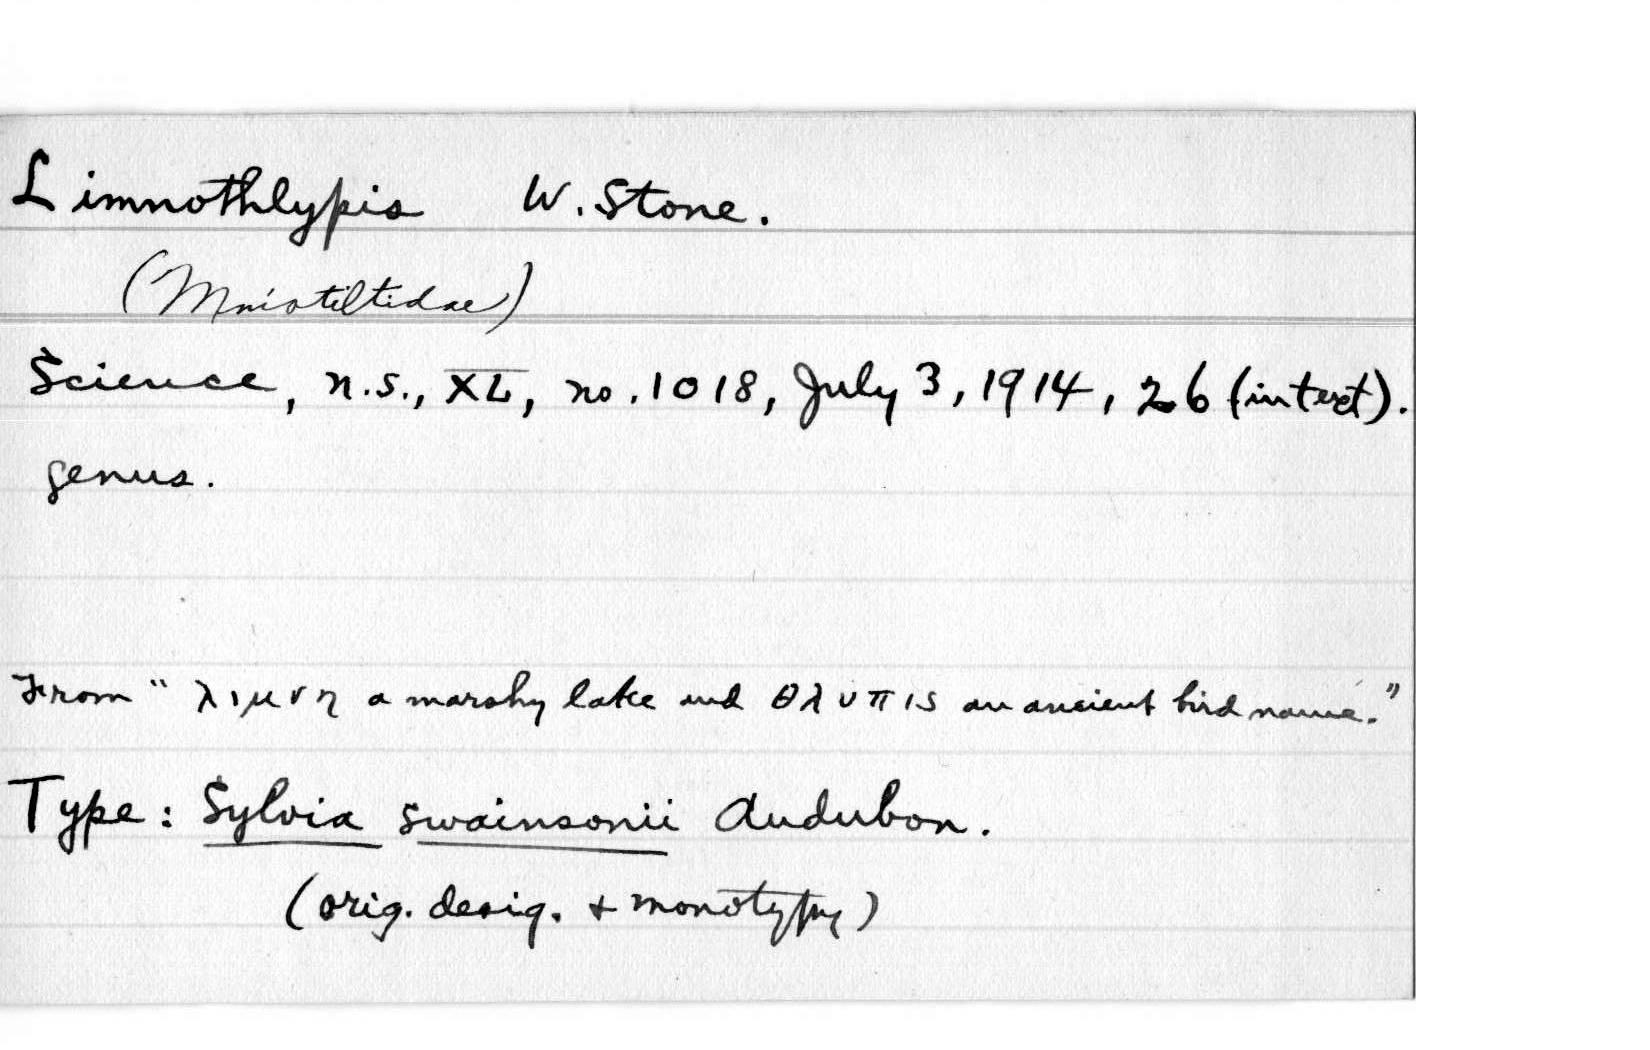 Limnothlypis W. Stone.
(Mniotiltidae)
Science, n.s., XL, no. 1018, July 3, 1914, 26 (in text).
genus.
From " λιμνη a marshy lake and θλυπις an ancient bird name."
Type: Sylvia swainsonii Audubon.
(orig. desig. + monotypy)